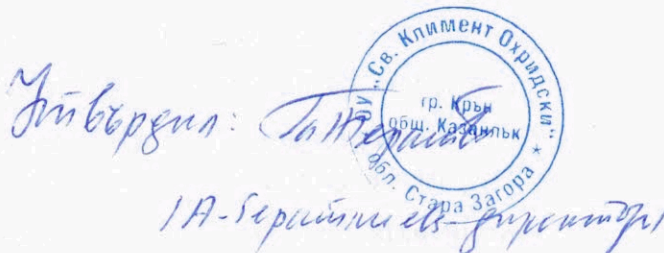 Утвърдил:
ОУ „Св. Климент Охридски“
гр. Крън
общ. Казанлък
* обл. Стара Загора *
директор/